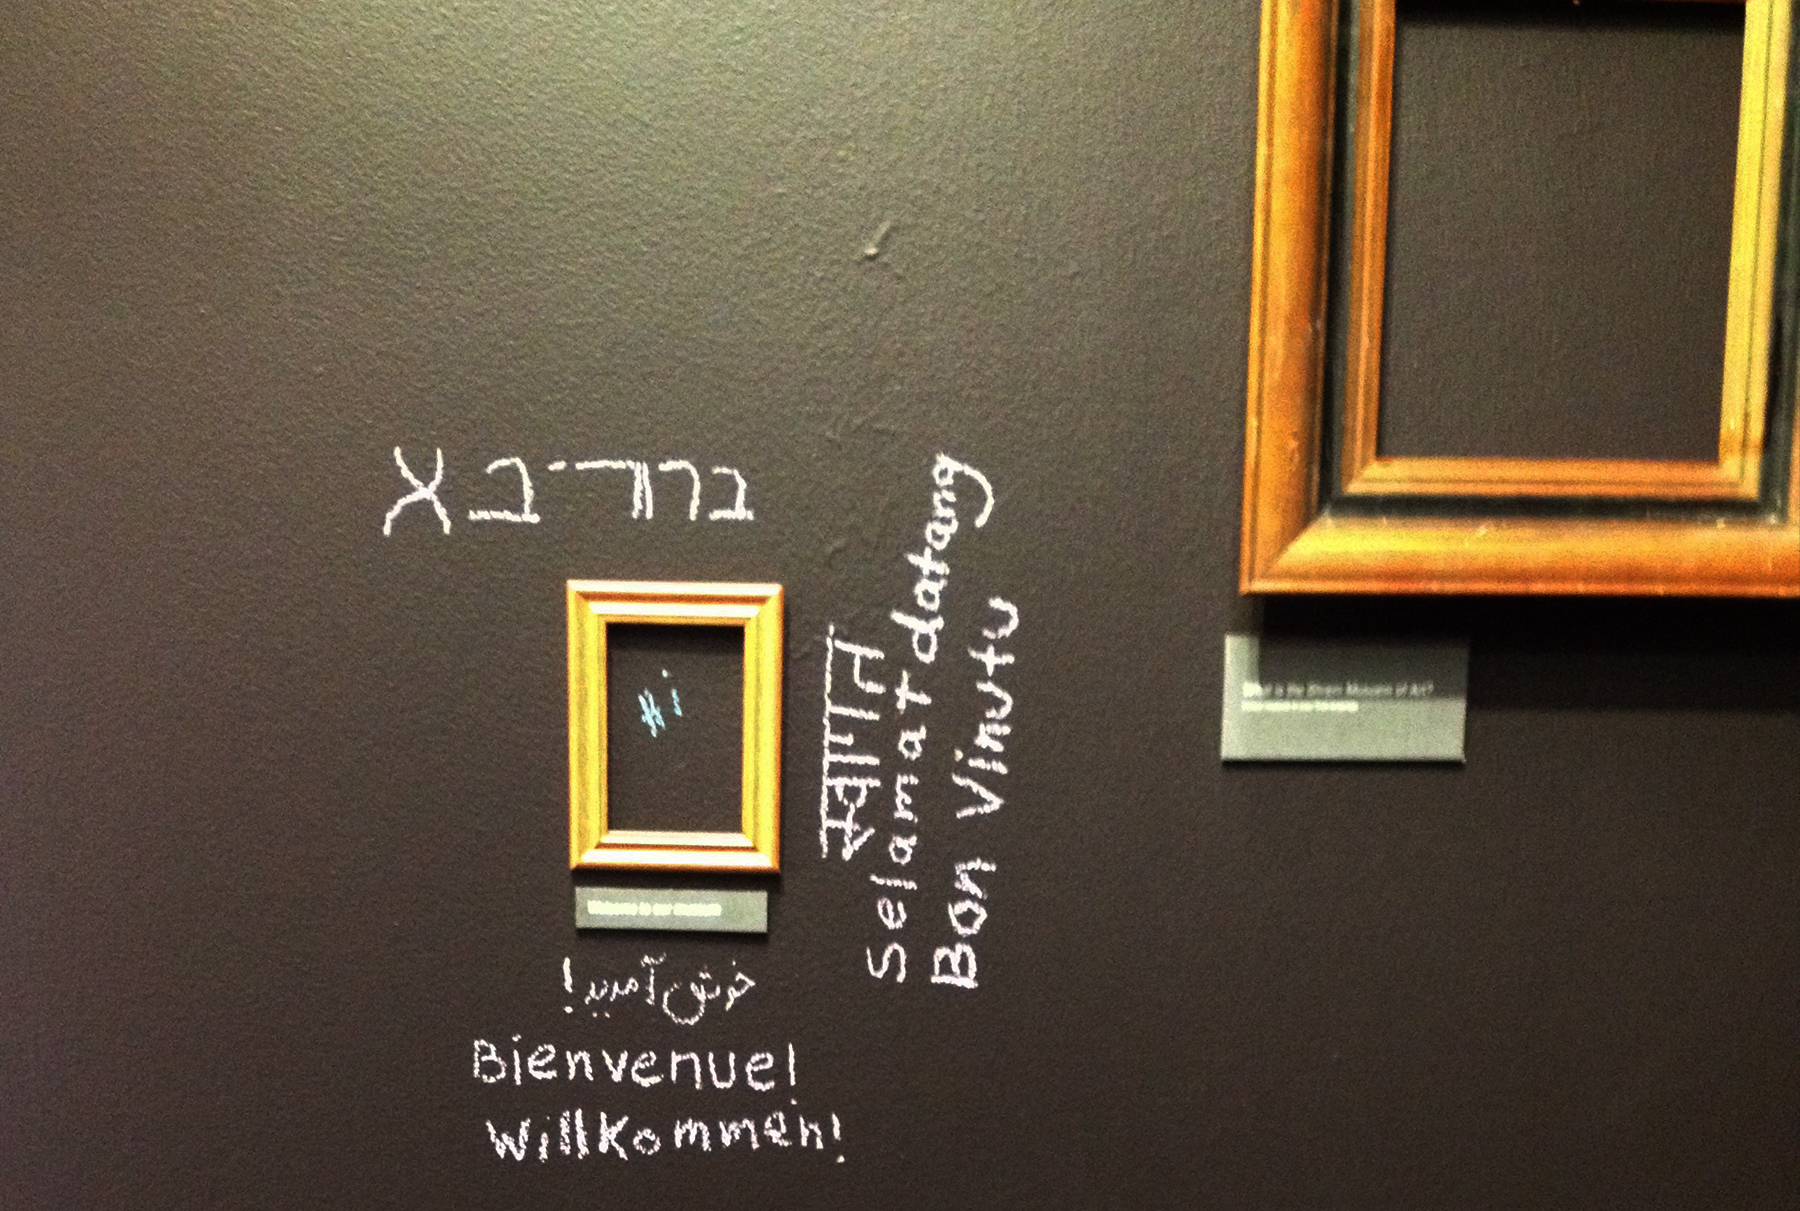 Hi
Welcome to our museum
خوش آمدید!
Bienvenue!
Willkommen!
स्वागत
Selamat datang
Bon Vinutu
What is the Museum of Art?